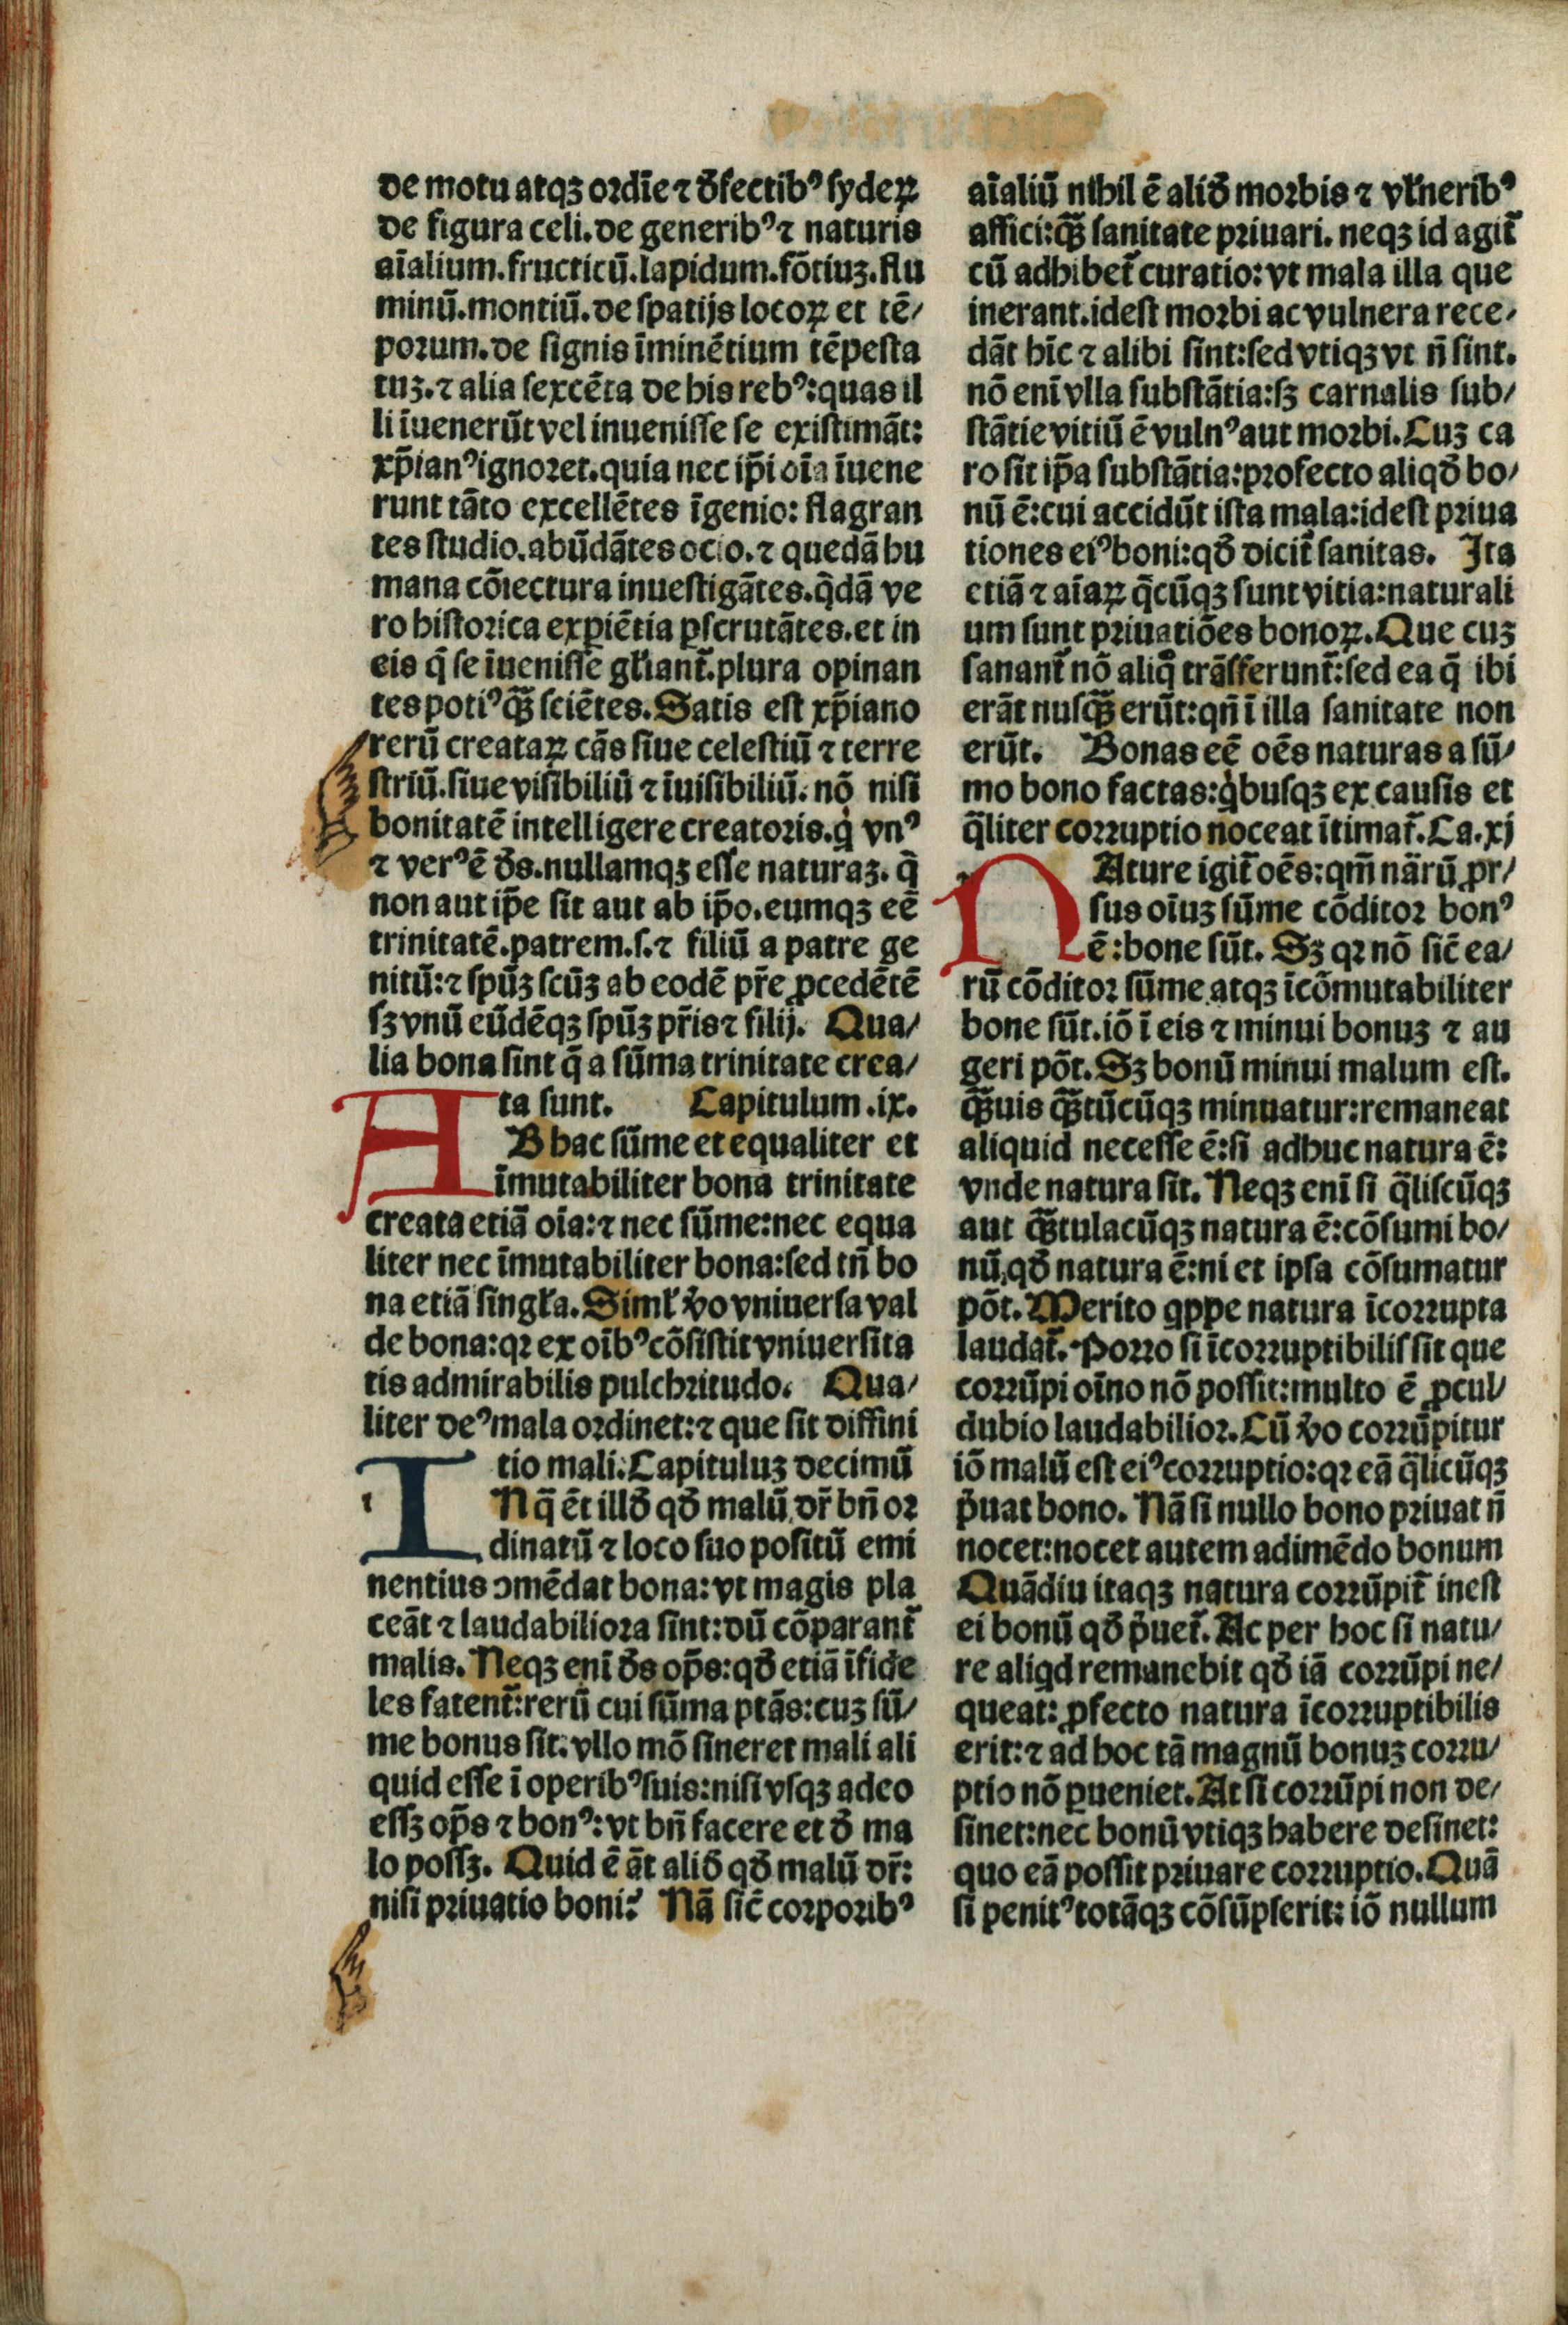 de motu atqꝫ ordīe ⁊ ꝺ̄fectibꝰ ſydeꝝ
de figura celi. de generibꝰ ⁊ naturis
aīalium. fructicū. lapidum. fōtiuꝫ. flu
minū. montiū. de ſpatijs locoꝝ et tē/
porum. de ſignis īminētium tēpeſta
tuꝫ. ⁊ alia ſexcēta de his rebꝰ: quas il
li īuenerūt vel inueniſſe ſe exiſtimāt:
xp̄ianꝰ ignoret. quia nec ip̄i oīa īuene
runt tāto excellētes īgenio: flagran
tes ſtudio. abūdātes ocio. ⁊ quedā hu
mana cōiectura inueſtigātes. q̄dā ve
ro hiſtorica exꝑiētia ꝑſcrutātes. et in
eis q̄ ſe īueniſſe gl̄iant᷑. plura opinan
tes potiꝰ qꝫ̄ ſciētes. Satis eſt xp̄iano
rerū creataꝝ cās ſiue celeſtiū ⁊ terre
ſtriū. ſiue viſibiliū ⁊ īuiſibiliū. nō niſi
bonitatē intelligere creatoris. qͥ vnꝰ
⁊ verꝰ ē ꝺ̄s. nullamqꝫ eſſe naturaꝫ. q̄
non aut ip̄e ſit aut ab ip̄o. eumqꝫ eē
trinitatē. patrem. ſ. ⁊ filiū a patre ge
nitū: ⁊ ſpūꝫ ſcūꝫ ab eodē pr̄e ꝓcedētē
ſꝫ vnū eūdēqꝫ ſpūꝫ pr̄is ⁊ filij. Qua/
lia bona ſint q̄ a ſūma trinitate crea/
ta ſunt. Capitulum .ix.
AB hac ſūme et equaliter et
īmutabiliter bona trinitate
creata etiā oīa: ⁊ nec ſūme: nec equa
liter nec īmutabiliter bona: ſed tn̄ bo
na etiā ſingl̄a. Siml̄ v̄o vniuerſa val
de bona: qꝛ ex oībꝰ cōſiſtit vniuerſita
tis admirabilis pulchritudo. Qua/
liter deꝰ mala ordinet: ⁊ que ſit diffini
tio mali. Capituluꝫ decimū
IN q̄ ēt illꝺ̄ qꝺ̄ malū dr̄ bn̄ or
dinatū ⁊ loco ſuo poſitū emi
nentius ɔmēdat bona: vt magis pla
ceāt ⁊ laudabiliora ſint: dū cōparant᷑
malis. Neqꝫ enī ꝺ̄s op̄s: qꝺ̄ etiā īfide
les fatent᷑: rerū cui ſūma ptās: cuꝫ ſū/
me bonus ſit. vllo mō ſineret mali ali
quid eſſe ī operibꝰ ſuis: niſi vſqꝫ adeo
eſſꝫ op̄s ⁊ bonꝰ: vt bn̄ facere et ꝺ̄ ma
lo poſſꝫ. Quid ē āt aliꝺ̄ qꝺ̄ malū dr̄:
niſi priuatio boni? Nā ſic̄ corporibꝰ
aīaliū nihil ē aliꝺ̄ morbis ⁊ vl̄neribꝰ
affici: qꝫ̄ ſanitate priuari. neqꝫ id agit᷑
cū adhibet᷑ curatio: vt mala illa que
inerant. ideſt morbi ac vulnera rece/
dāt hīc ⁊ alibi ſint: ſed vtiqꝫ vt n̄ ſint.
nō enī vlla ſubſtātia: ſꝫ carnalis ſub/
ſtātie vitiū ē vulnꝰ aut morbi. Cuꝫ ca
ro ſit ip̄a ſubſtātia: profecto aliqꝺ̄ bo/
nū ē: cui accidūt iſta mala: ideſt priua
tiones eiꝰ boni: qꝺ̄ dicit᷑ ſanitas. Ita
etiā ⁊ aīaꝝ q̄cūqꝫ ſunt vitia: naturali
um ſunt priuatiōes bonoꝝ. Que cuꝫ
ſanant᷑ nō aliqͦ trāſferunt᷑: ſed ea q̄ ibi
erāt nuſqꝫ̄ erūt: qn̄ ī illa ſanitate non
erūt. Bonas eē oēs naturas a ſū/
mo bono factas: qͥbuſqꝫ ex cauſis et
q̄liter corruptio noceat ītimat᷑. Ca. xj
NAture igit᷑ oēs: qm̄ nārū ꝓr/
ſus oīuꝫ ſūme cōditor bonꝰ
ē: bone ſūt. Sꝫ qꝛ nō ſic̄ ea/
rū cōditor ſūme atqꝫ īcōmutabiliter
bone ſūt. iō ī eis ⁊ minui bonuꝫ ⁊ au
geri pōt. Sꝫ bonū minui malum eſt.
qꝫ̄uis qꝫ̄tūcūqꝫ minuatur: remaneat
aliquid neceſſe ē: ſi adhuc natura ē:
vnde natura ſit. Neqꝫ enī ſi q̄liſcūqꝫ
aut qꝫ̄tulacūqꝫ natura ē: cōſumi bo/
nū, qꝺ̄ natura ē: ni et ipſa cōſumatur
pōt. Merito qͥppe natura īcorrupta
laudat᷑. Porro ſi īcorruptibiliſ ſit que
corrūpi oīno nō poſſit: multo ē ꝓcul/
dubio laudabilior. Cū v̄o corrūpitur
iō malū eſt eiꝰ corruptio: qꝛ eā q̄licūqꝫ
p̄uat bono. Nā ſi nullo bono priuat n̄
nocet: nocet autem adimēdo bonum
Quādiu itaqꝫ natura corrūpit᷑ ineſt
ei bonū qꝺ̄ p̄uet᷑. Ac per hoc ſi natu/
re aliqͥd remanebit qꝺ̄ iā corrūpi ne/
queat: ꝓfecto natura īcorruptibilis
erit: ⁊ ad hoc tā magnū bonuꝫ corru/
ptio nō ꝑueniet. At ſi corrūpi non de/
ſinet: nec bonū vtiqꝫ habere deſinet:
quo eā poſſit priuare corruptio. Quā
ſi penitꝰ totāqꝫ cōſūpſerit: iō nullum